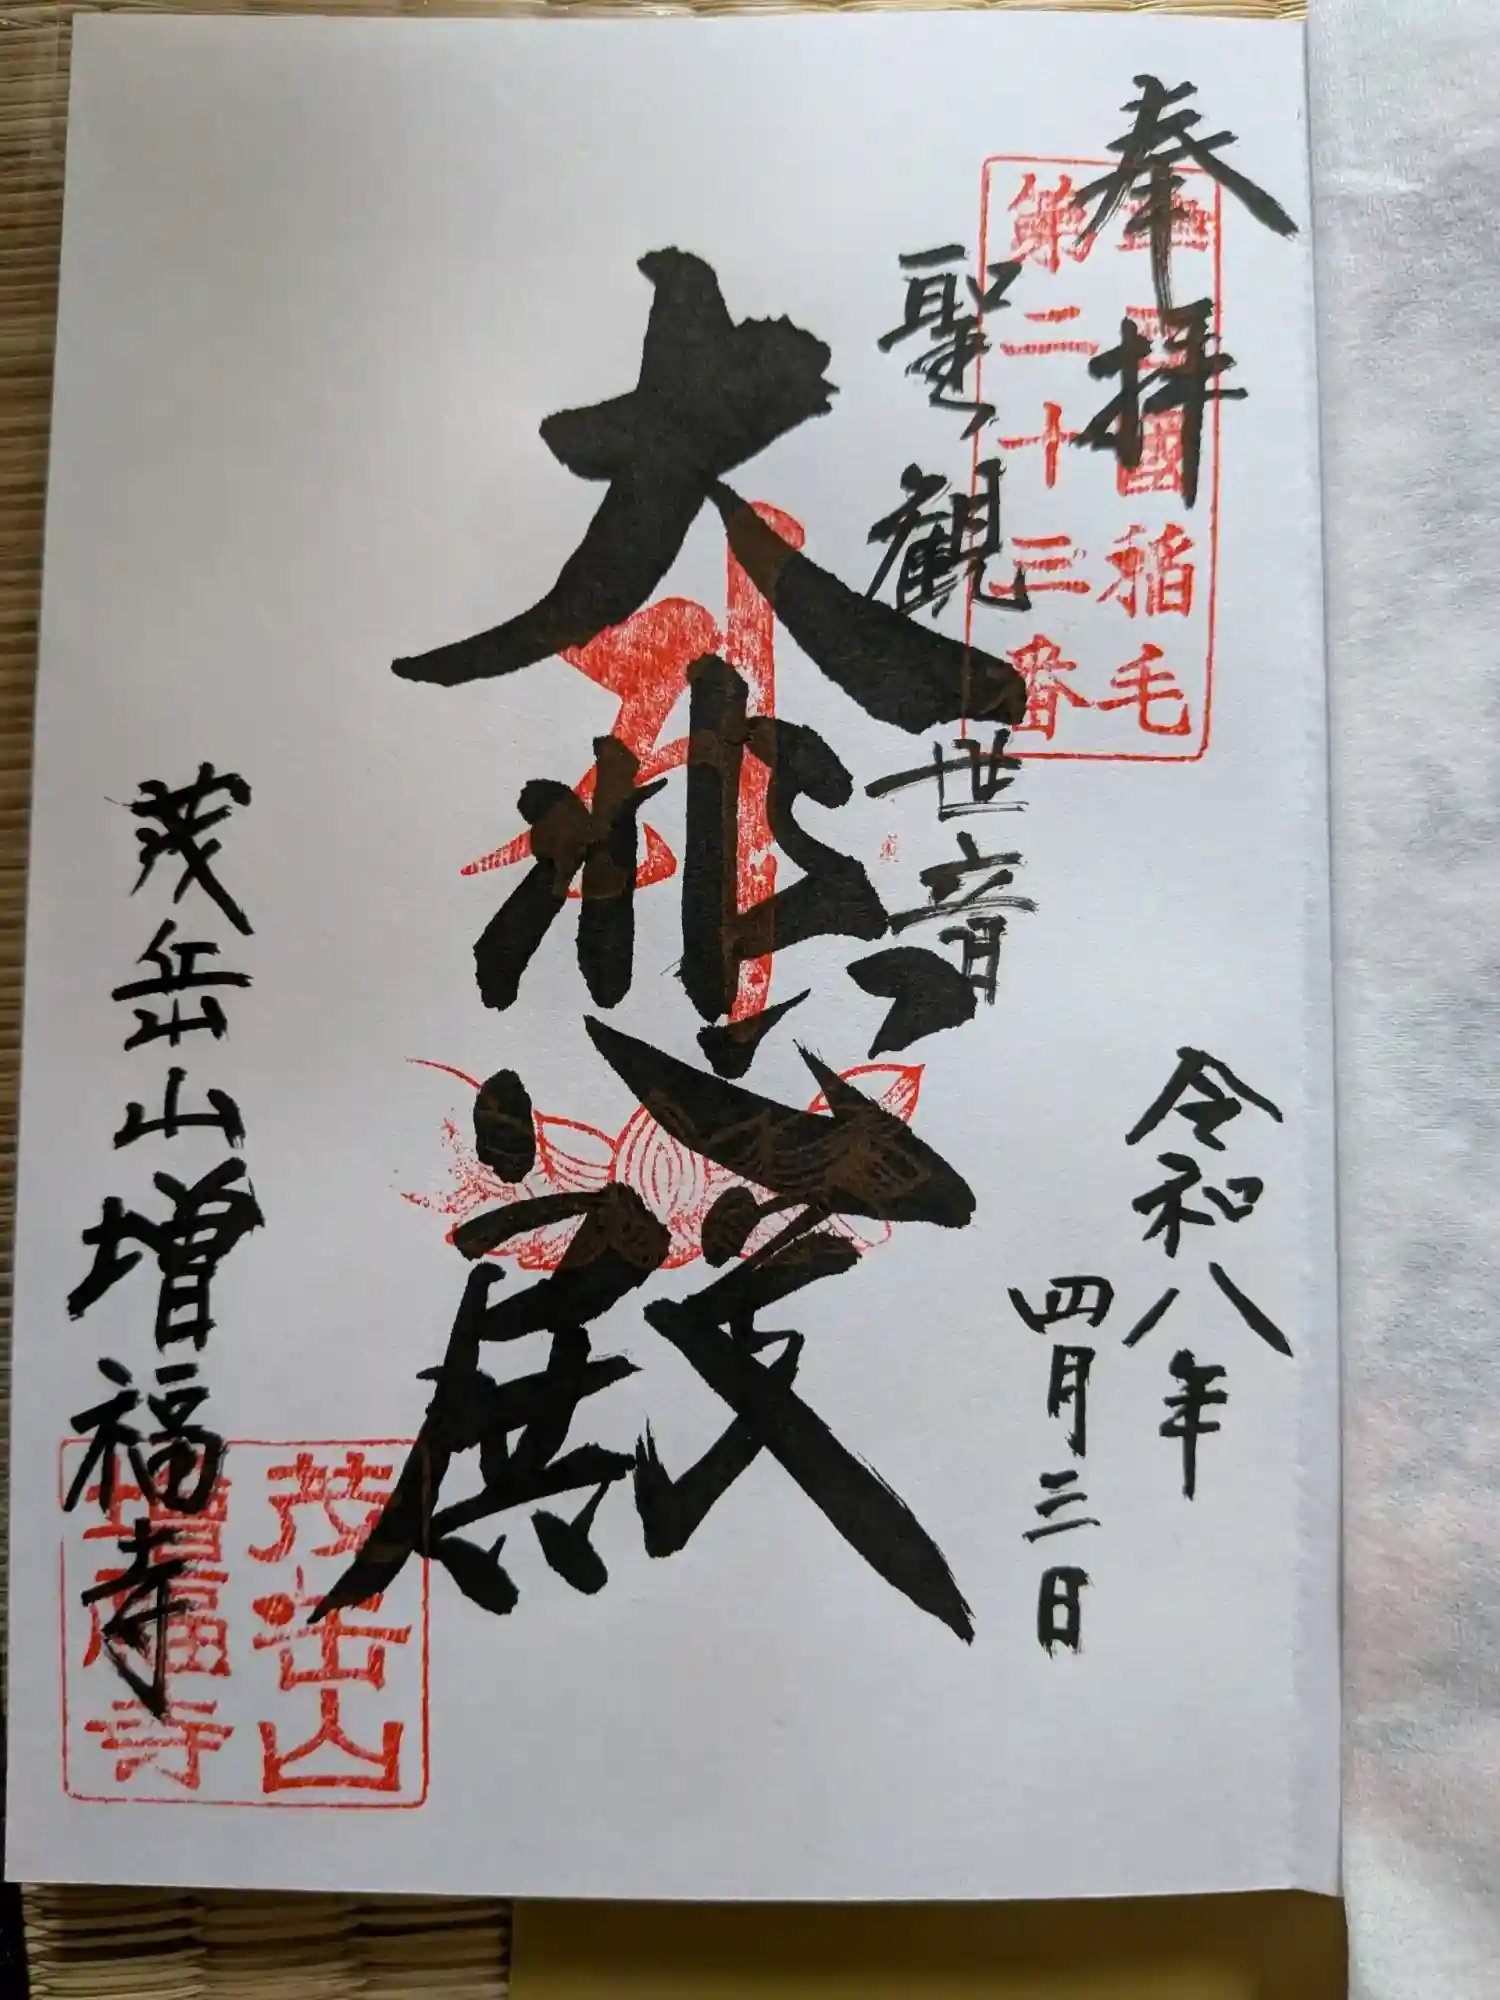 奉拝
西国稲毛
第二十三番
聖観世音
大悲殿
令和八年
四月三日
茂岳山増福寺
茂岳山
増福寺